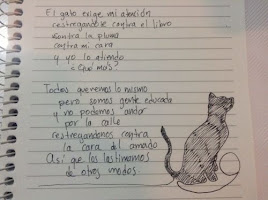 El gato exige mi atención
restregándose contra el libro
contra la pluma
contra mi cara
y yo lo atiendo
¿Qué más?
Todos queremos lo mismo
pero somos gente educada
y no podemos andar
por la calle
restregándonos contra
la cara del amado
Así que los lastimamos
de otros modos.